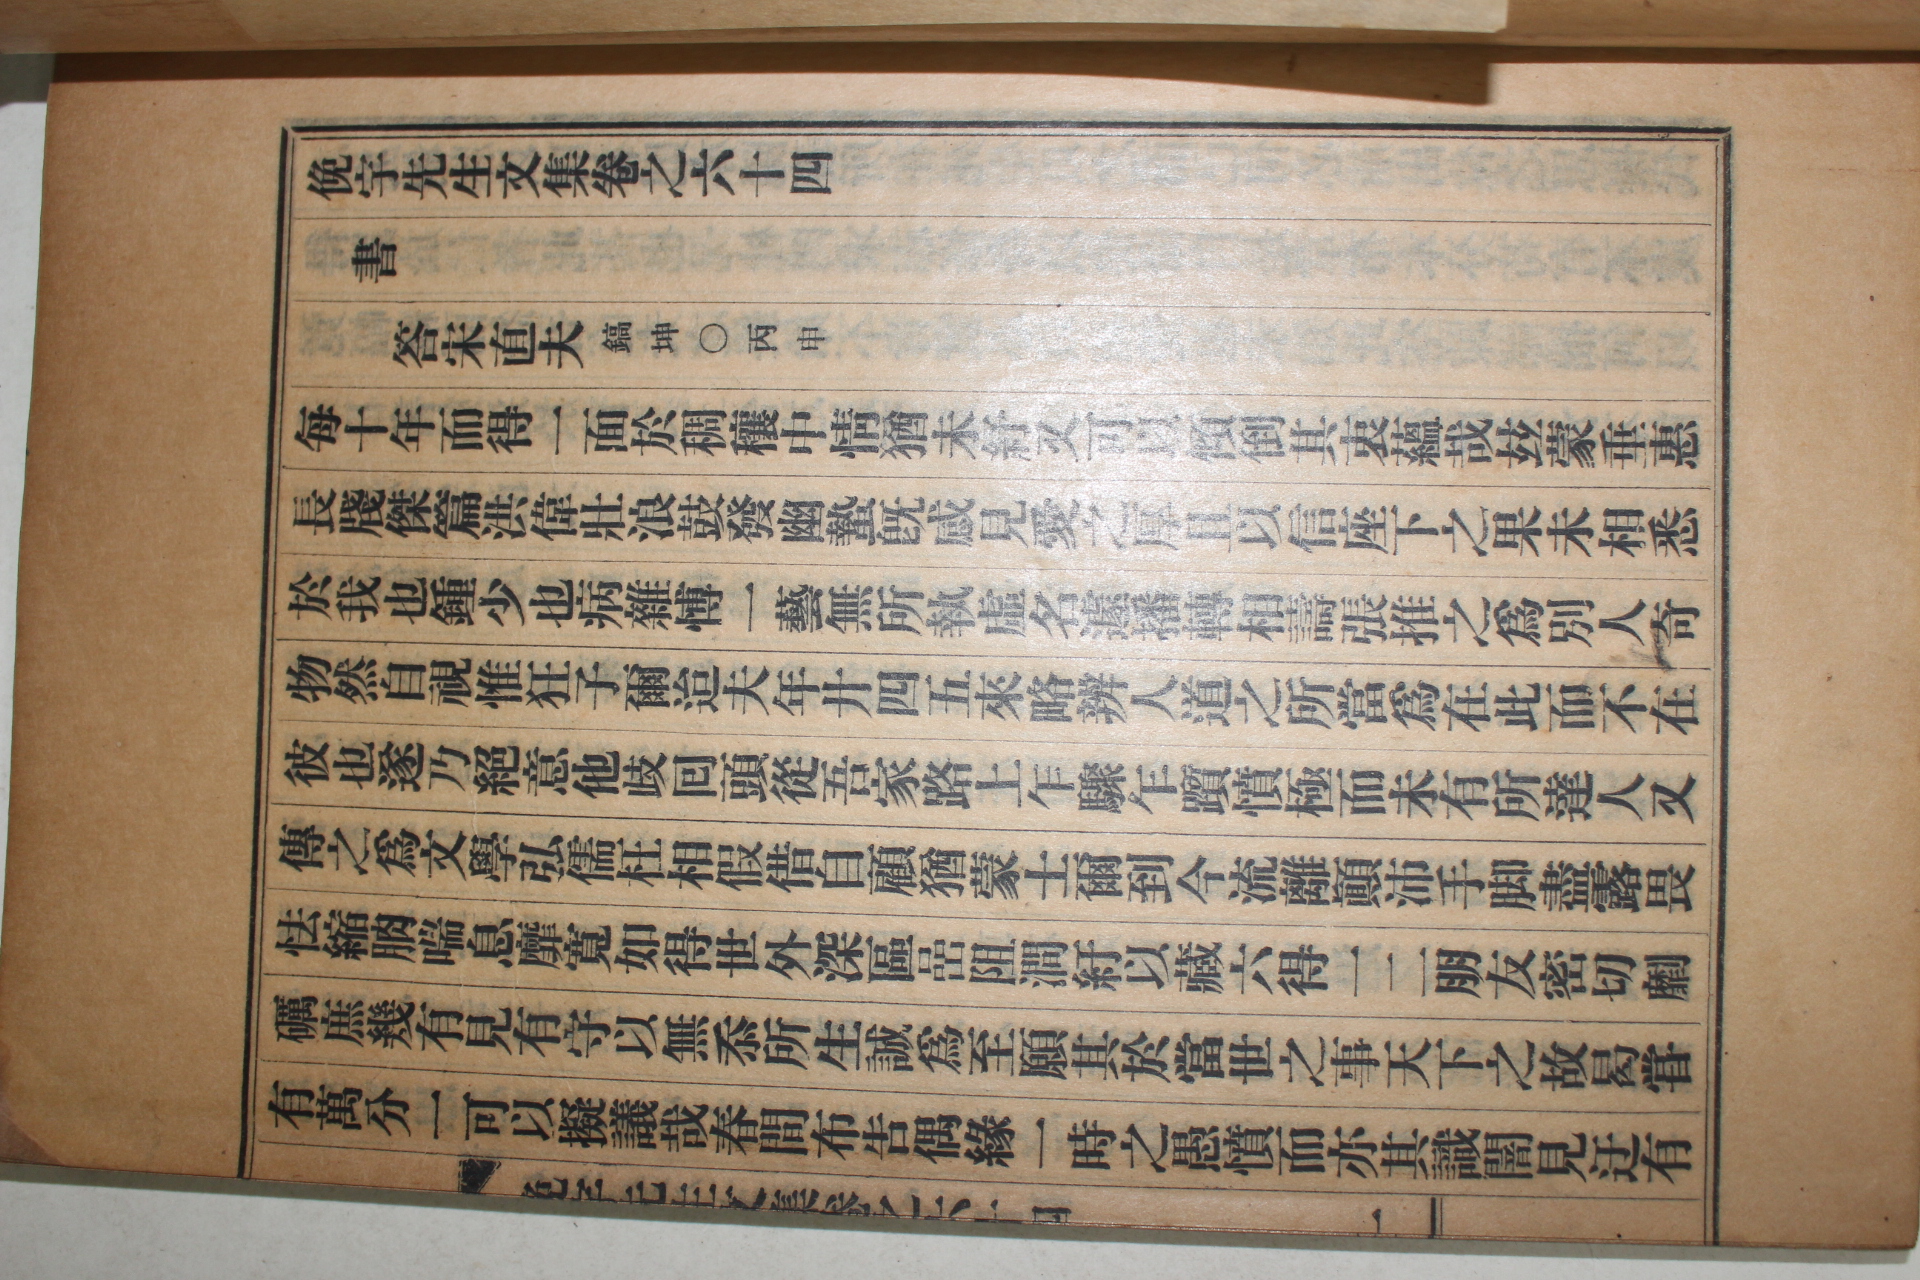 俛宇先生文集卷之六十四
書
答宋直夫鎬坤〇丙申
每十年而得一面於稠穰中情猶未紓又可以傾倒其衷蘊哉玆蒙垂惠
長牋傑篇洪偉壯浪鼓發幽蟄旣感見愛之厚且以信座下之果未相悉
於我也鍾少也病雜愽一藝無所執虛名遽播轉相譸張推之爲別人奇
物然自視惟狂子爾迨夫年廿四五來略辨人道之所當爲在此而不在
彼也遂乃絕意他歧回頭從吾家路上乍驟乍躓憤極而未有所達人又
傳之爲文學弘儒枉相假借自顧猶蒙士爾到今流離顚沛手脚盡露畏
怯縮朒喘息靡寬如得世外深區嵒阻澗紆以藏六得一二朋友密切劘
礪庶幾有見有守以無忝所生誠爲至願其於當世之事天下之故曷甞
有萬分一可以擬議哉春間布告偶緣一時之愚憤而亦其識闇見迂有
俛宇先生文集卷之六十四 一